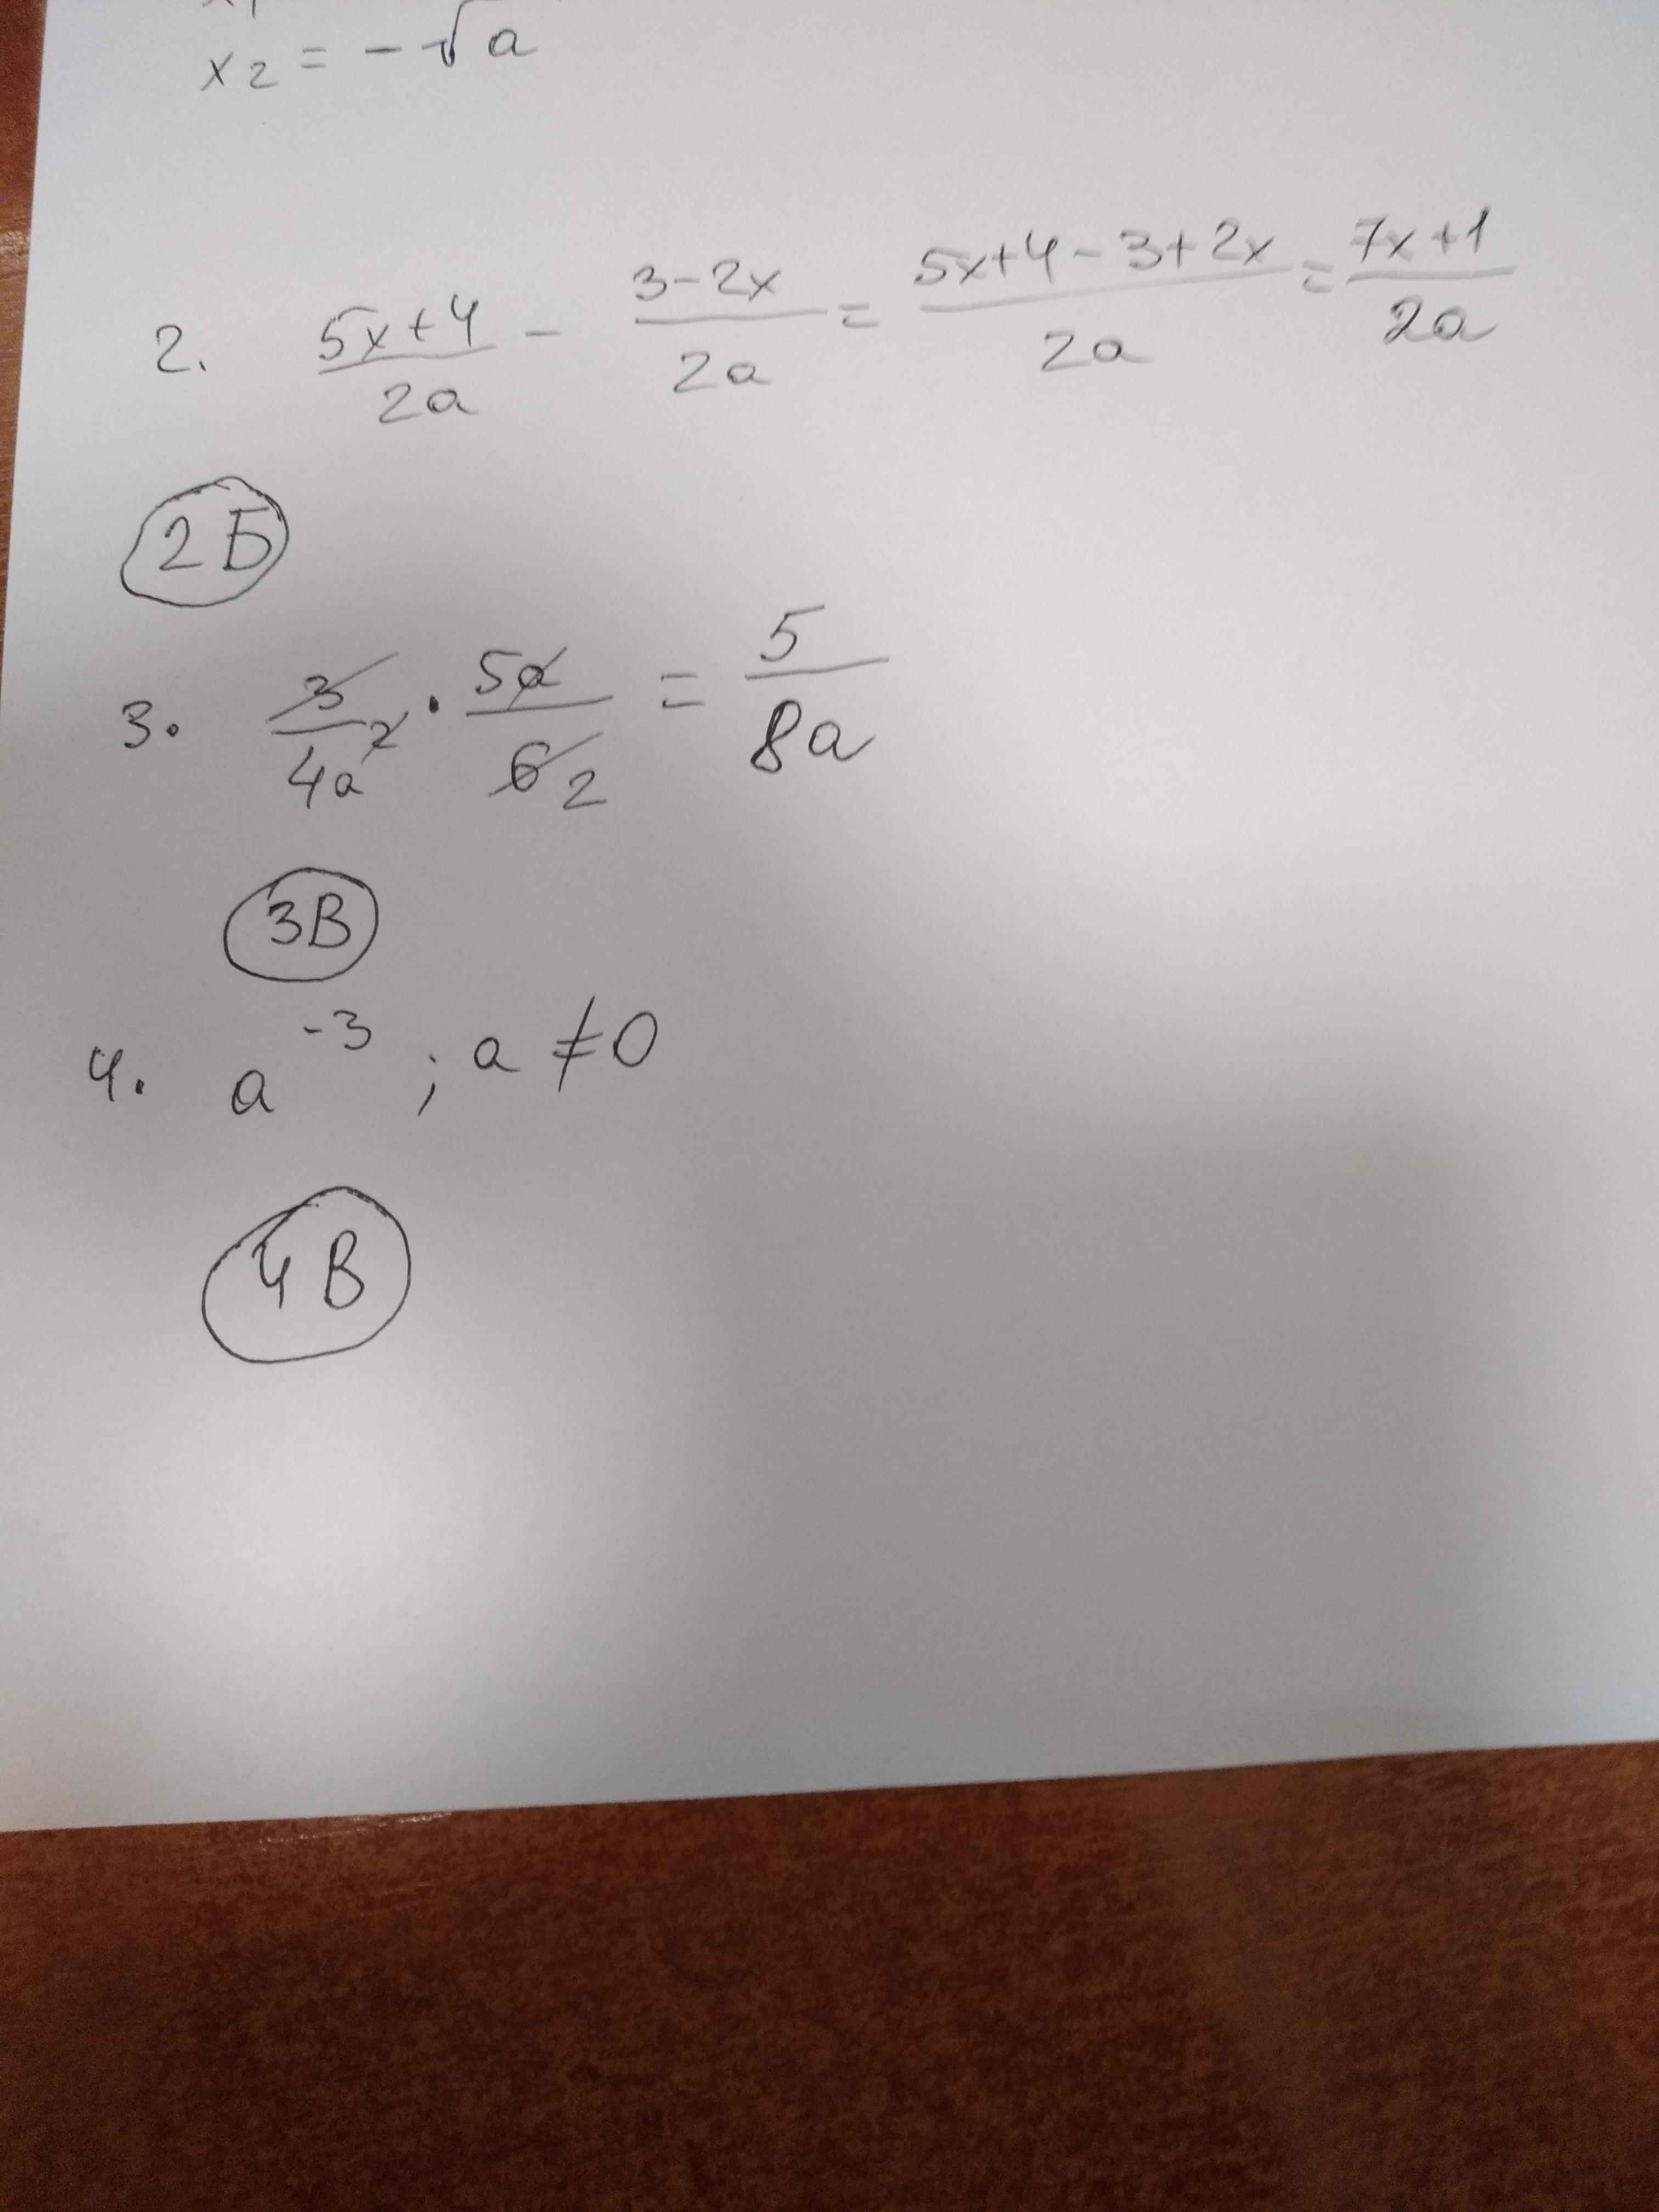 x₂ = -√a
2. (5x+4)/(2a) - (3-2x)/(2a) = (5x+4-3+2x)/(2a) = (7x+1)/(2a)
2Б
3. 3/(4a²) · 5a/6 2 = 5/(8a)
3В
4. a⁻³ ; a ≠ 0
4В